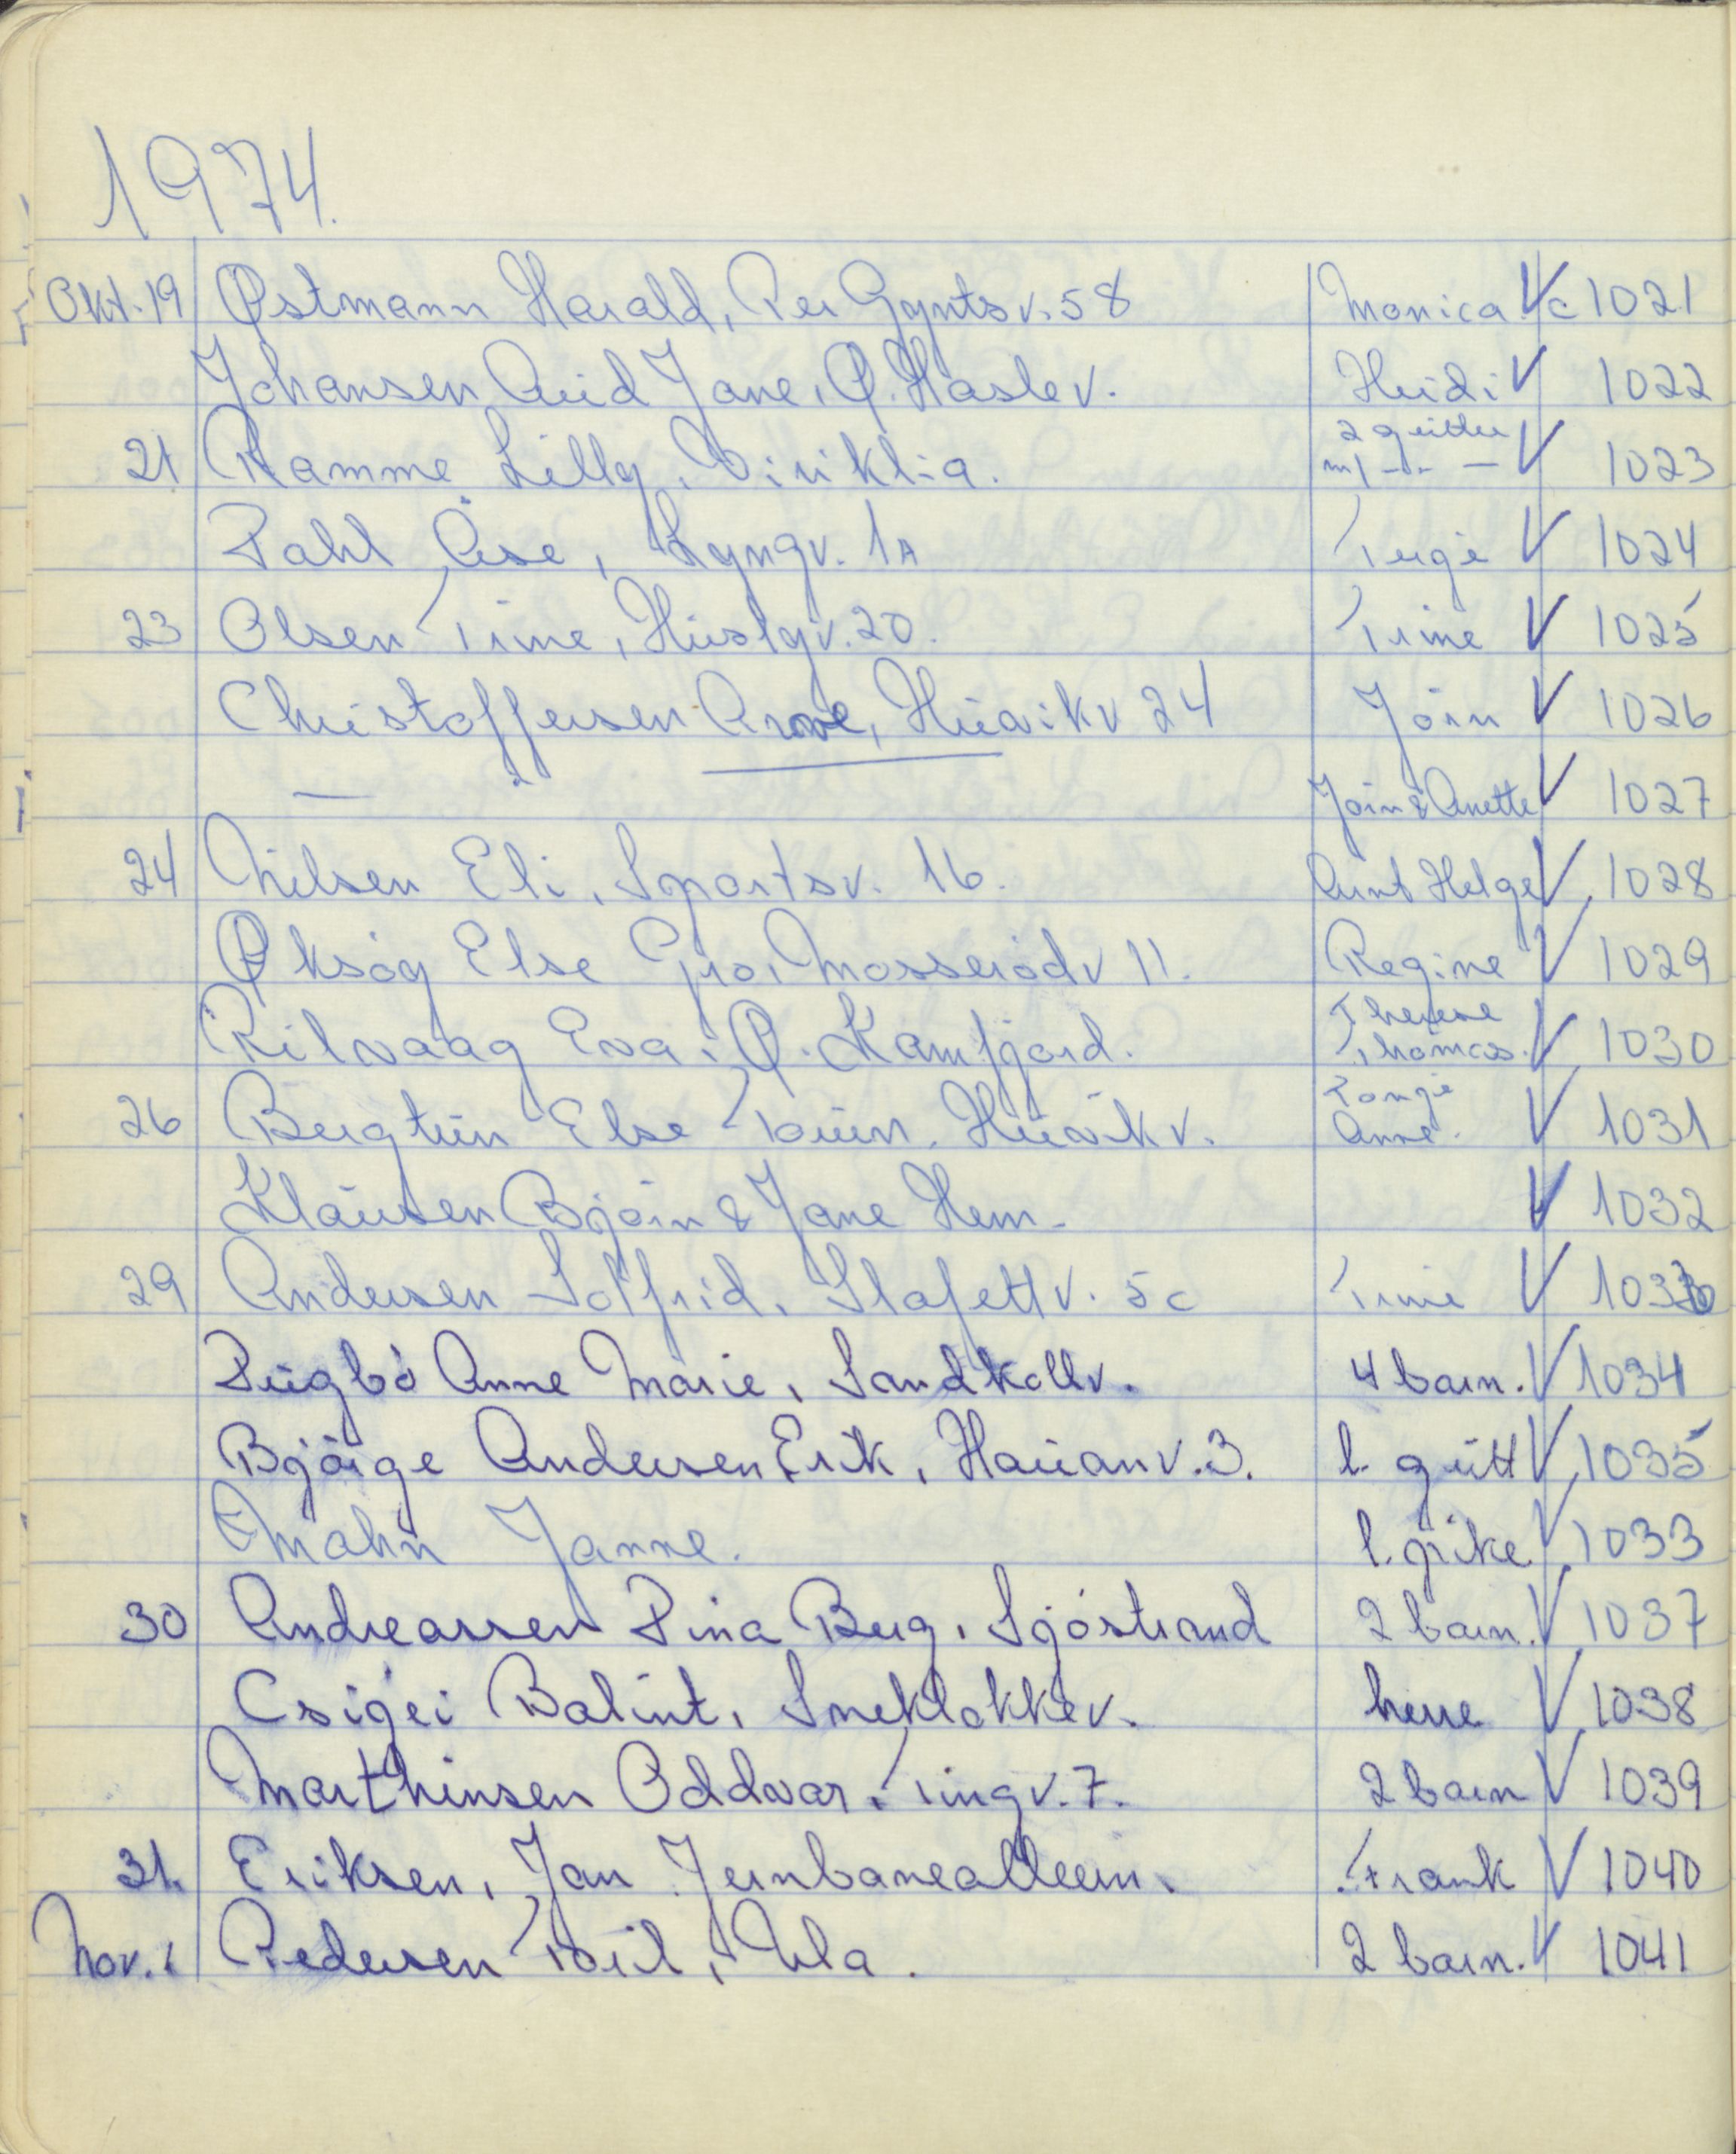 1974.
Okt. 19 Østmann Harald, Per Gyntsv. 58 Monica. V c 1021
Johansen Arid Jane, Ø. Haslev. Heidi V 1022
21 Ramme Lilly, Virikl. 9. 2 gutter m/ - " - V 1023
Dahl Åse, Lyngv. 1A Terje V 1024
23 Olsen Trine, Huslyv. 20. Trine V 1025
Christoffersen Arne, Hůvikv 24 Jørn V 1026
— " — Jørn & Anette V 1027
24 Nilsen Eli, Sportsv. 16. Arnt Helge V 1028
Øksøy Else Gro, Mosserødv 11. Regine V 1029
Rilvaag Eva, Ø. Kamfjord. Therese Thomas. V 1030
26 Bergtun Else Torun, Huvikv. Tonje Anne. V 1031
Klausen Bjørn & Jane Hem. V 1032
29 Andersen Solfrid, Stafettv. 5c Trine V 1033
Dugbø Anne Marie, Sandkollv. 4 barn. V 1034
Bjørge Andersen Erik, Hauanv. 3. l. gutt V 1035
Mahn Janne. l. pike V 1033
30 Andreassen Tina Berg, Sjøstrand 2 barn. V 1037
Csigei Balint, Sneklokkev. herre V 1038
Marthinsen Oddvar, Tingv. 7. 2 barn V 1039
31. Eriksen, Jan Jernbanealleen. Frank V 1040
Nov. 1 Pedersen Toril, Ula. 2 barn. V 1041